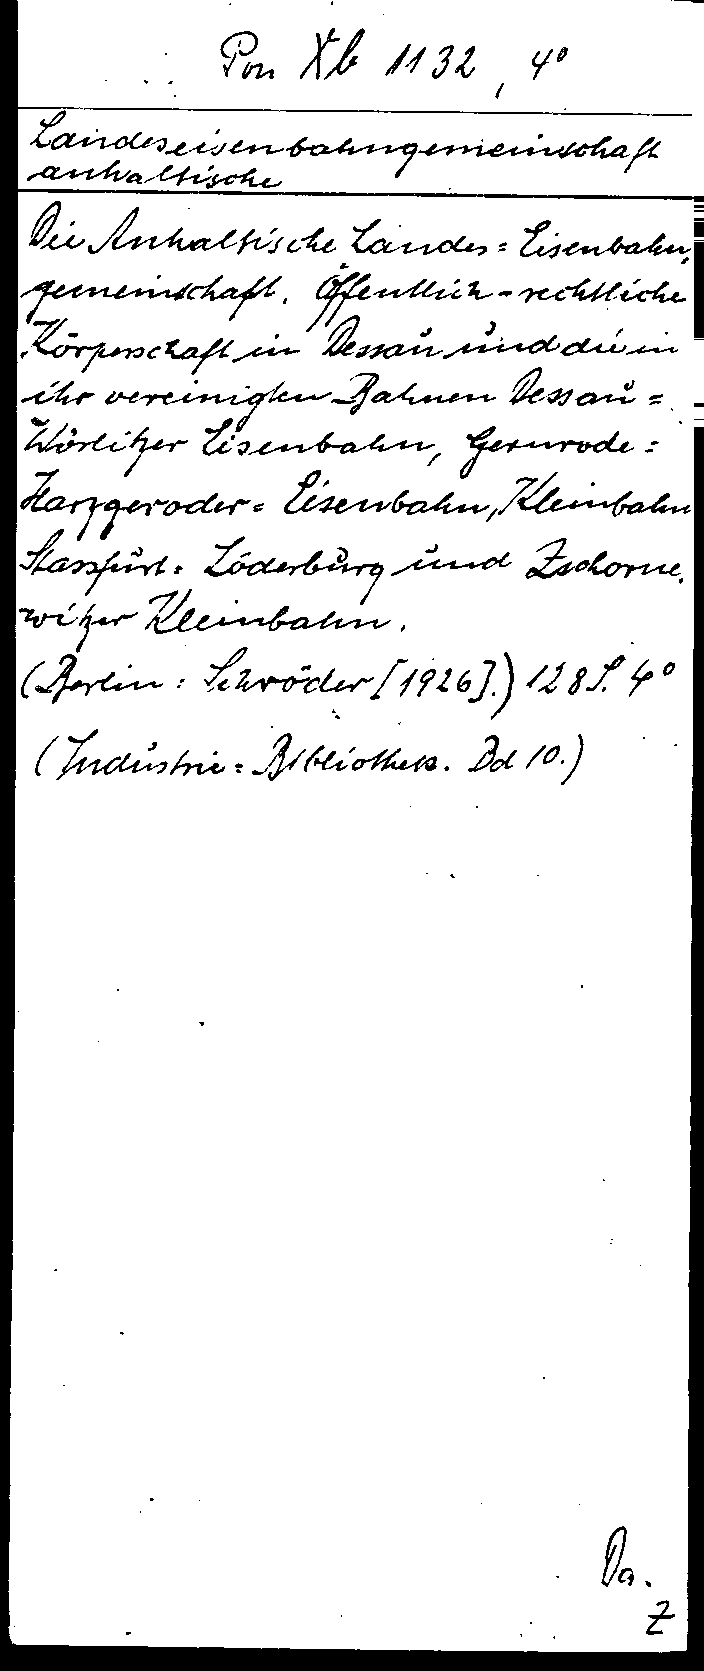 Pon Xb 1132, 4°
Landeseisenbahngemeinschaft
anhaltische
Die Anhaltische Landes=Eisenbahn,
gemeinschaft. Öffentlich-rechtliche
Körperschaft in Dessau und die in
ihr vereinigten Bahnen Dessau=
Wörlitzer Eisenbahn, Gernrode=
Harzgeroder=Eisenbahn, Kleinbahn
Stassfurt=Löderburg und Zschorne,
witzer Kleinbahn.
(Berlin: Schröder [1926].) 128 S. 4°
(Industrie=Bibliothek. Bd 10.)
Da.
Z